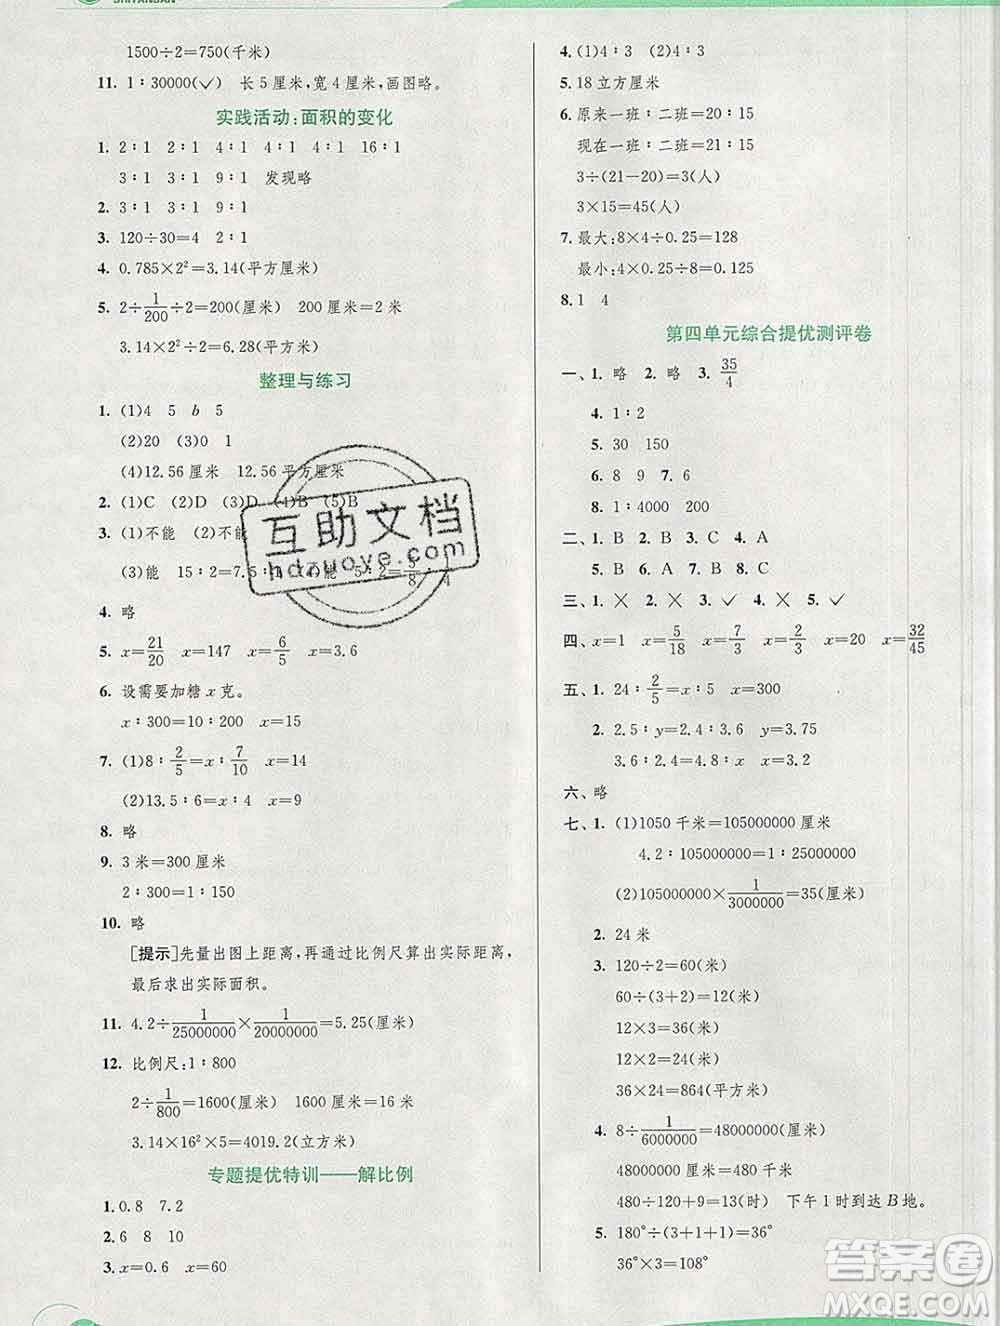 SHIYANBAN
1500÷2=750(千米)
11. 1∶30000(✓) 长 5 厘米,宽 4 厘米,画图略。
实践活动:面积的变化
1. 2∶1 2∶1 4∶1 4∶1 16∶1
3∶1 3∶1 9∶1 发现略
2. 3∶1 3∶1 9∶1
3. 120÷30=4 2∶1
4. 0.785×2²=3.14(平方厘米)
5. 2÷1/200÷2=200(厘米) 200 厘米=2 米
3.14×2÷2=6.28(平方厘米)
整理与练习
1. (1)4 5 b 5
(2)20 (3)0 1
(4)12.56 厘米 12.56 平方厘米
2. (1)C (2)D (3)D (4)B (5)B
3. (1)不能 (2)不能
(3)能 15∶2=7.5∶1 (4)能 5∶2=5/8∶1/4
4. 略
5. x=21/20 x=147 x=6/5 x=3.6
6. 设需要加糖 x 克。
x∶300=10∶200 x=15
7. (1)8∶2/5=x∶7/10 x=14
(2)13.5∶6=x∶4 x=9
8. 略
9. 3 米=300 厘米
2∶300=1∶150
10. 略
[提示]先量出图上距离,再通过比例尺算出实际距离,
最后求出实际面积。
11. 4.2÷1/25000000×1/20000000=5.25(厘米)
12. 比例尺:1∶800
2÷1/800=1600(厘米) 1600 厘米=16 米
3.14×16²×5=4019.2(立方米)
专题提优特训——解比例
1. 0.8 7.2
2. 6 8 10
3. x=0.6 x=60
4. (1)4∶3 (2)4∶3
5. 18 立方厘米
6. 原来一班∶二班=20∶15
现在一班∶二班=21∶15
3÷(21-20)=3(人)
3×15=45(人)
7. 最大:8×4÷0.25=128
最小:4×0.25÷8=0.125
8. 1 4
第四单元综合提优测评卷
一、1. 略 2. 略 3. 35/4
4. 1∶2
5. 30 150
6. 8 9 7. 6
8. 1∶4000 200
二、1. B 2. B 3. C 4. A
5. B 6. A 7. B 8. C
三、1. ✕ 2. ✕ 3. ✓ 4. ✕ 5. ✓
四、x=1 x=5/18 x=7/3 x=2/3 x=20 x=32/45
五、1. 24∶2/5=x∶5 x=300
2. 2.5∶y=2.4∶3.6 y=3.75
3.6∶2.7=x∶2.4 x=3.2
六、略
七、1. (1)1050 千米=105000000 厘米
4.2∶105000000=1∶25000000
(2)105000000×1/3000000=35(厘米)
2. 24 米
3. 120÷2=60(米)
60÷(3+2)=12(米)
12×3=36(米)
12×2=24(米)
36×24=864(平方米)
4. 8÷1/6000000=48000000(厘米)
48000000 厘米=480 千米
480÷120+9=13(时) 下午 1 时到达 B 地。
5. 180°÷(3+1+1)=36°
36°×3=108°
互助文档
hdzuoye.com
答案圈
MXQE.COM